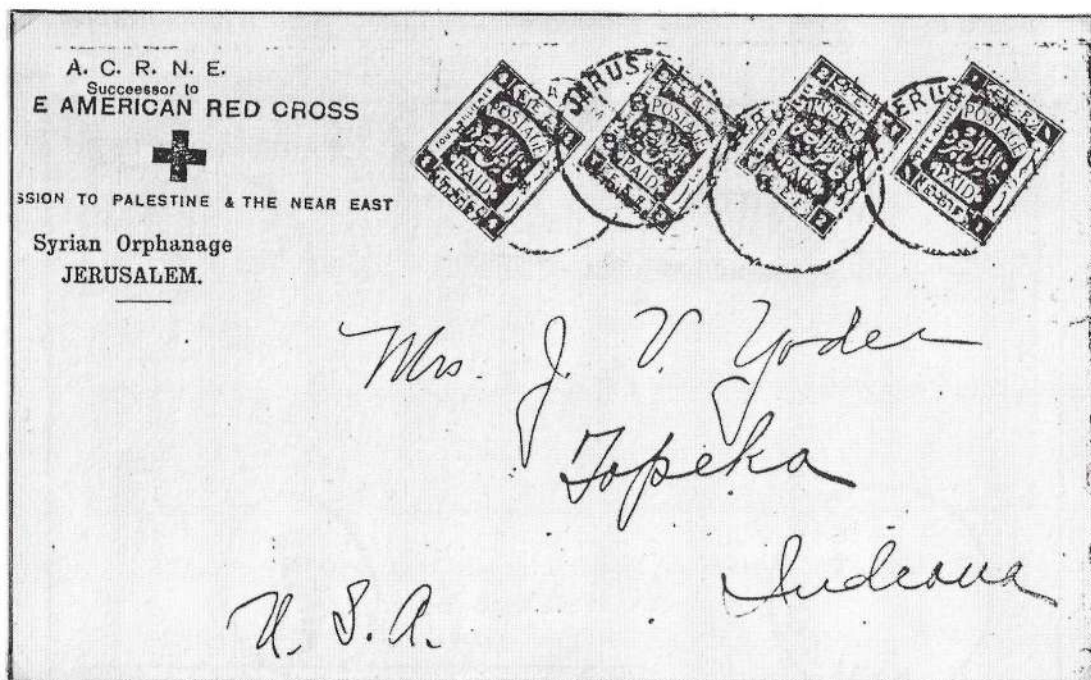 A. C. R. N. E.
Successor to
E AMERICAN RED CROSS
SSION TO PALESTINE & THE NEAR EAST
Syrian Orphanage
JERUSALEM.
JERUS
POSTAGE
PAID
POSTAGE
PAID
POSTAGE
PAID
POSTAGE
PAID
Mrs. J. V. Yoder
Topeka
Indeana
U. S. A.